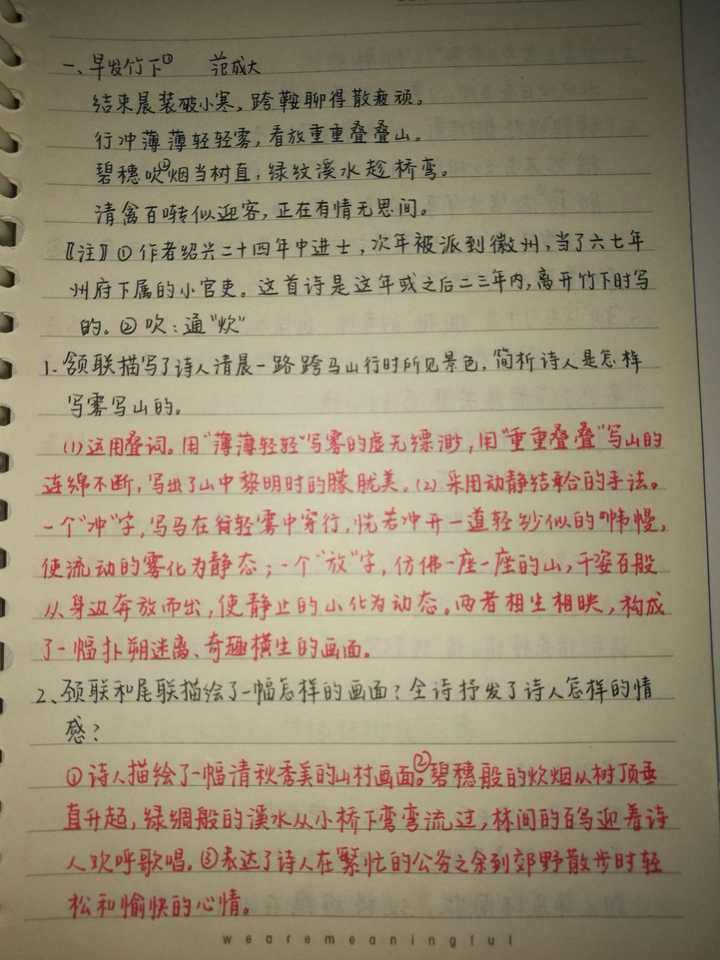 一、早发竹下① 范成大
结束晨装破小寒，跨鞍聊得散疲顽。
行冲薄薄轻轻雾，看放重重叠叠山。
碧穗吹②烟当树直，绿纹溪水趁桥弯。
清禽百啭似迎客，正在有情无思间。
〖注〗①作者绍兴二十四年中进士，次年被派到徽州，当了六七年
州府下属的小官吏。这首诗是这年或之后二三年内，离开竹下时写
的。②吹：通"炊"
1.颔联描写了诗人清晨一路跨马山行时所见景色，简析诗人是怎样
写雾写山的。
(1)运用叠词。用"薄薄轻轻"写雾的虚无缥渺，用"重重叠叠"写山的
连绵不断，写出了山中黎明时的朦胧美。(2)采用动静结合的手法。
一个"冲"字，写马在轻雾中穿行，恍若冲开一道轻纱似的帏幔，
使流动的雾化为静态；一个"放"字，仿佛一座一座的山，千姿百般
从身边奔放而出，使静止的山化为动态。两者相生相映，构成
了一幅扑朔迷离、奇趣横生的画面。
2、颈联和尾联描绘了一幅怎样的画面？全诗抒发了诗人怎样的情
感？
①诗人描绘了一幅清秋秀美的山村画面。②碧穗般的炊烟从树顶垂
直升起，绿绸般的溪水从小桥下弯弯流过，林间的百鸟迎着诗
人欢呼歌唱。③表达了诗人在繁忙的公务之余到郊野散步时轻
松和愉快的心情。
wearemeaningful